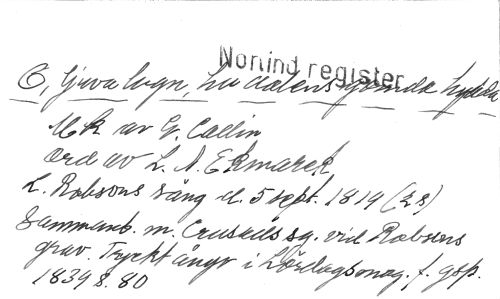 Nomind register
O, ljuva lugn, hu dalens gömda hydda
Mk av G. Callin
ord av L. A. Ekmarck
L. Robsons sång d. 5 sept. 1819 (28)
Sammanb. m. sg. vid Robsons
grav. Tryckt ånyo i Lördagsmag. f. gsp.
1839 s. 80